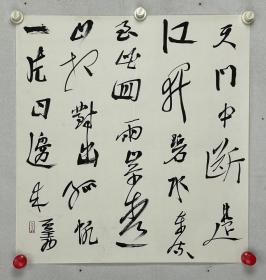 天门中斷楚
江开碧水东流
至此回兩岸青
山相對出孤帆
一片日邊来